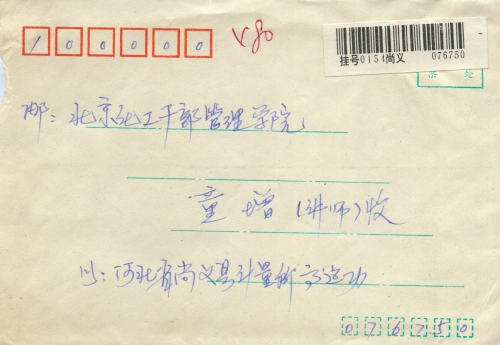 100000
V80
挂号0154尚义 076750
邮：北京化工干部管理学院
童增（讲师）收
河北省尚义县计量所
076750